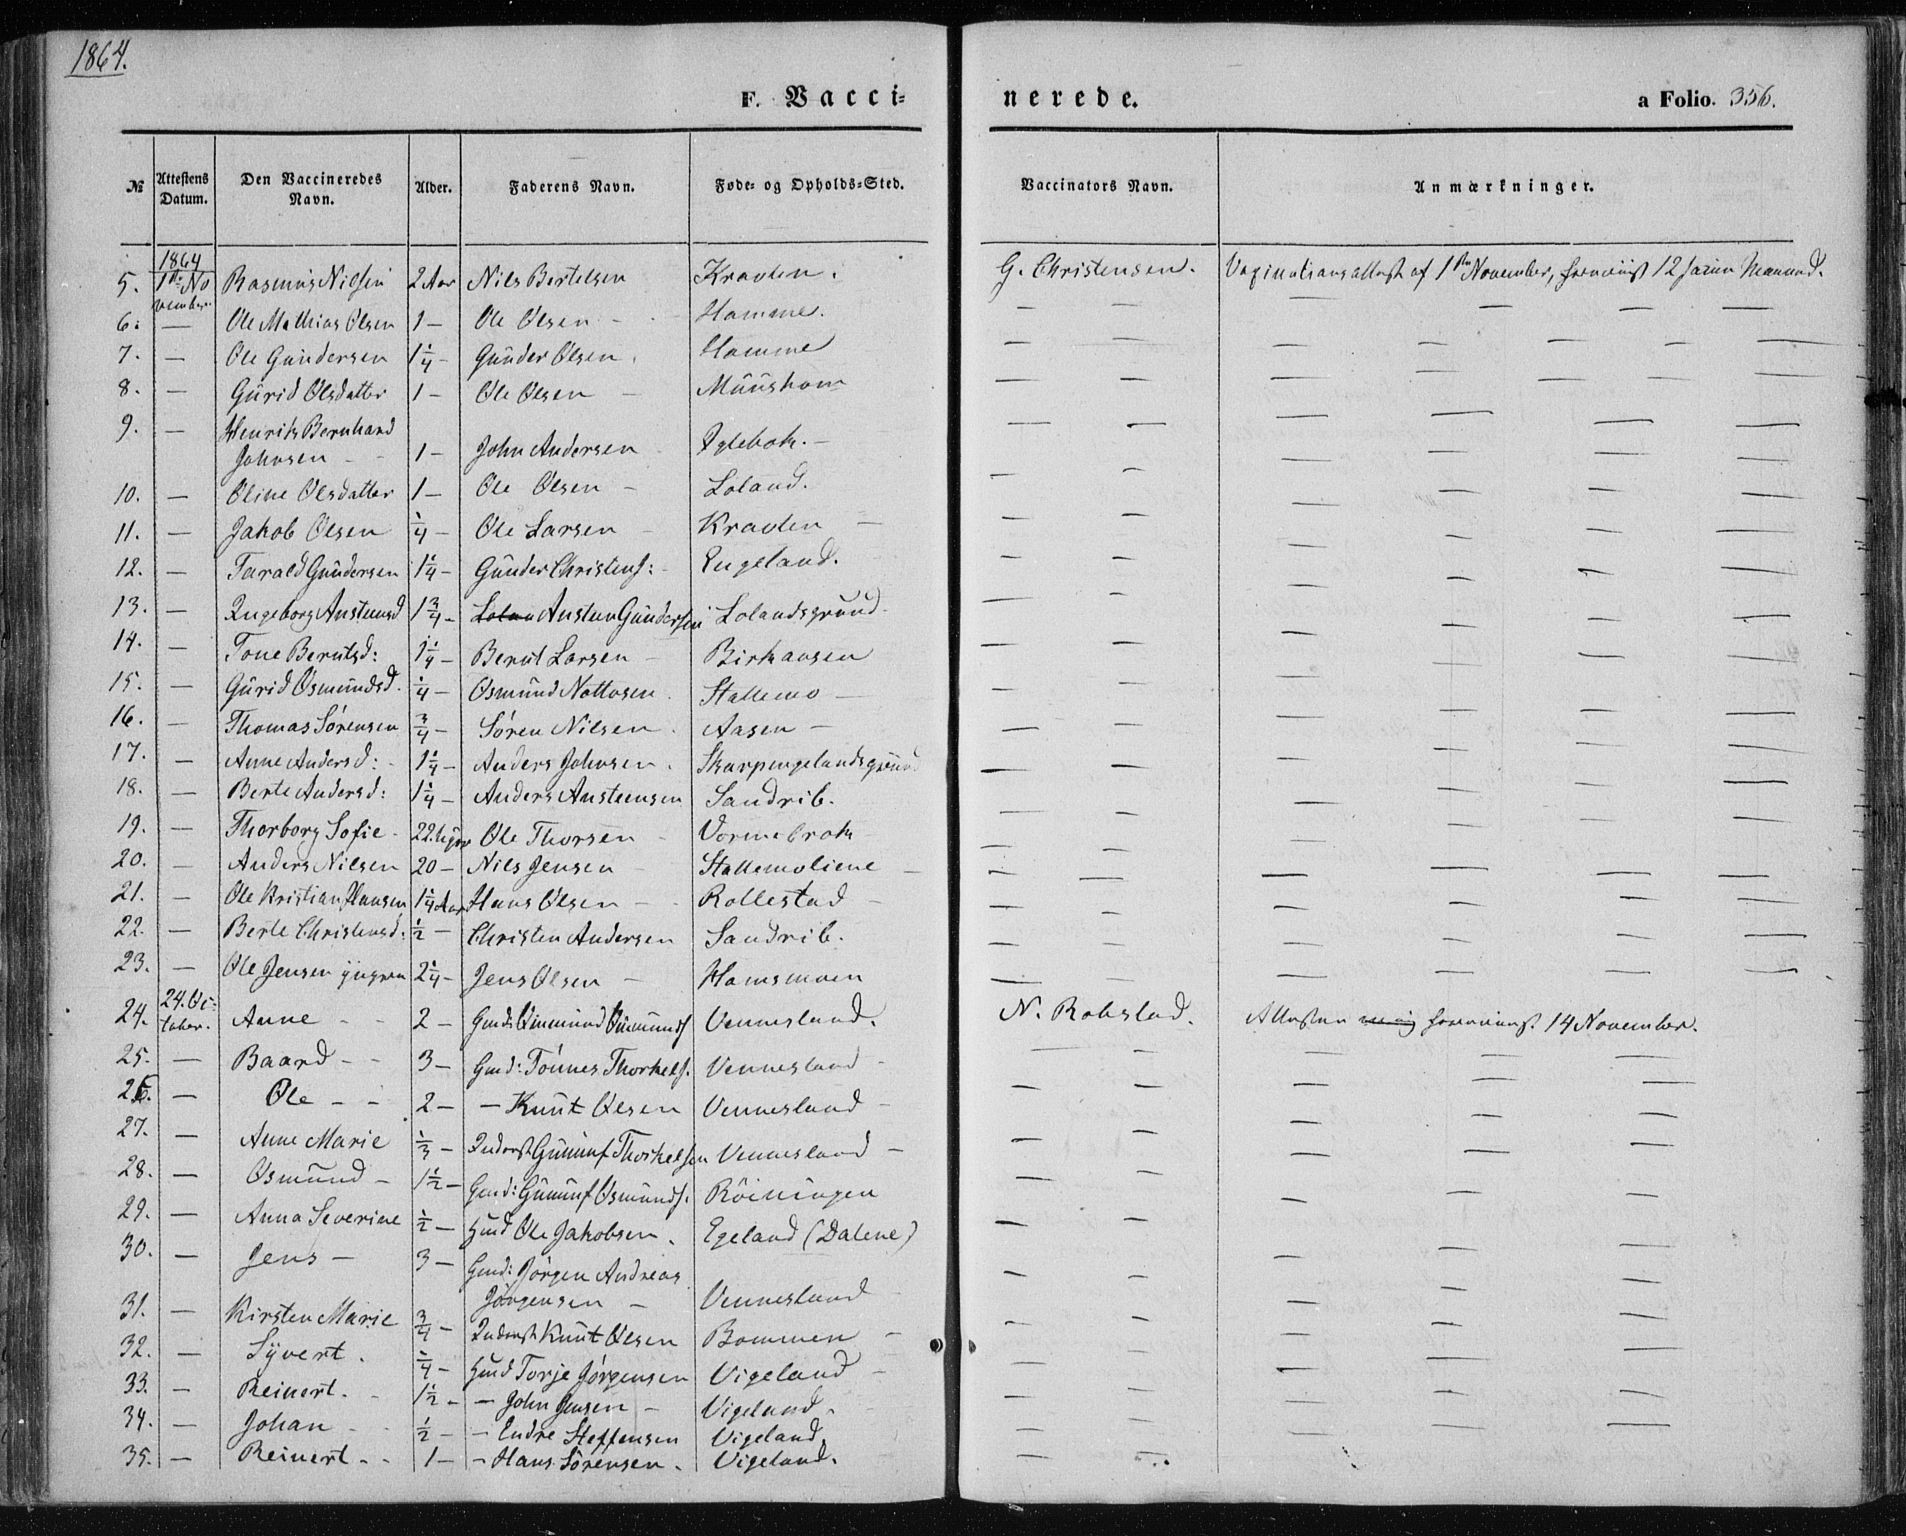 1864.
F. Vacci=
nerede.
a Folio. 356.
№ Attestens Datum. Den Vaccineredes Navn. Alder. Faderens Navn. Føde- og Opholds-Sted. Vaccinators Navn. Anmærkninger.
1864
5. 1ste No Rasmus Nilsen 2 Aar Nils Bertelsen Kravten. G. Christensen. af 1ste November, 12
vember.
6. — Ole Mathias Olsen 1 — Ole Olsen — Homme. — — — — — —
7. — Ole Gundersen 1 1/4 — Gunder Olsen. Homme — — — — — —
8. — Gurid Olsdatter 1 — Ole Olsen — Muushom — — — — — —
9. — Henrik Bernhard
Johnsen — 1 — John Andersen Iglebæk. — — — — — — —
10. — Oline Olsdatter 1 — Ole Olsen — Loland. — — — — — —
11. — Jakob Olsen 1/4 — Ole Larsen — Kravten — — — — — — —
12. — Tarald Gundersen 1 1/4 — Gunder Christens: — Engeland. — — — — — —
13. — Ingeborg Austensd 1 3/4 — Austen Gundersen Lolandsgrund. — — — — — —
14. — Tone Berntsd: 1 1/4 — Bernt Larsen — Birkaasen — — — — — —
15. — Gurid Osmundsd. 1/4 — Osmund Nottosen. Stallemo — — — — — — —
16. — Thomas Sørensen 3/4 — Søren Nilsen. Aasen — — — — — — —
17. — Anne Andersd: — 1 1/4 — Anders Johnsen. Skarpengelandsgrund — — — — — —
18. — Berte Andersd: 1 1/4 — Anders Austensen Sandrib. — — — — — —
19. — Thorborg Sofie — 22 Uger Ole Thorsen — — — — — — —
20. — Anders Nilsen 20 — Nils Jensen — Stallemoliene — — — — — — —
21. — Ole Kristian Hansen 1 1/4 Aar Hans Olsen — Rollestad — — — — — — —
22. — Berte Christensd: 1/2 — Christen Andersen Sandrib. — — — — — —
23. — Ole Jensen yngere 2 1/4 — Jens Olsen — Homsmoen — — — — — —
24. 24. Oc=
tober. Anne — — 2 — Vennesland. N. Robstad. Attesten 14 November.
25. — Baard — — 3 — Gmd: Tønnes Thorkels. Vennesland — — — — — — —
26. — Ole — — 2 — — Knut Olsen Vennesland — — — — — — —
27. — Anne Marie 1/3 — Inderst Gunuf Thorkelsen Vennesland — — — — — — —
28. — Osmund — 1 1/2 — Gmd: Gunuf Osmunds. Röiningen — — — — — —
29. — Anna Severine 1/2 — Hmd Ole Jakobsen. Egeland (Dalene) — — — — — —
30. — Jens — 3 — Gmd: Jørgen Andreas
Jørgensen — Vennesland — — — — — —
31. — Kirsten Marie 3/4 — Inderst Knut Olsen Bommen — — — — — — —
32. — Syvert. 1/4 — Hmd Torje Jørgensen Vigeland — — — — — — —
33. — Reinert. — 1 1/2 — — John Jensen — Vigeland. — — — — — —
34. — Johan — 1/2 — — Endre Steffensen Vigeland. — — — — — —
35. — Reinert — — 1 — — Hans Sørensen. Vigeland. —